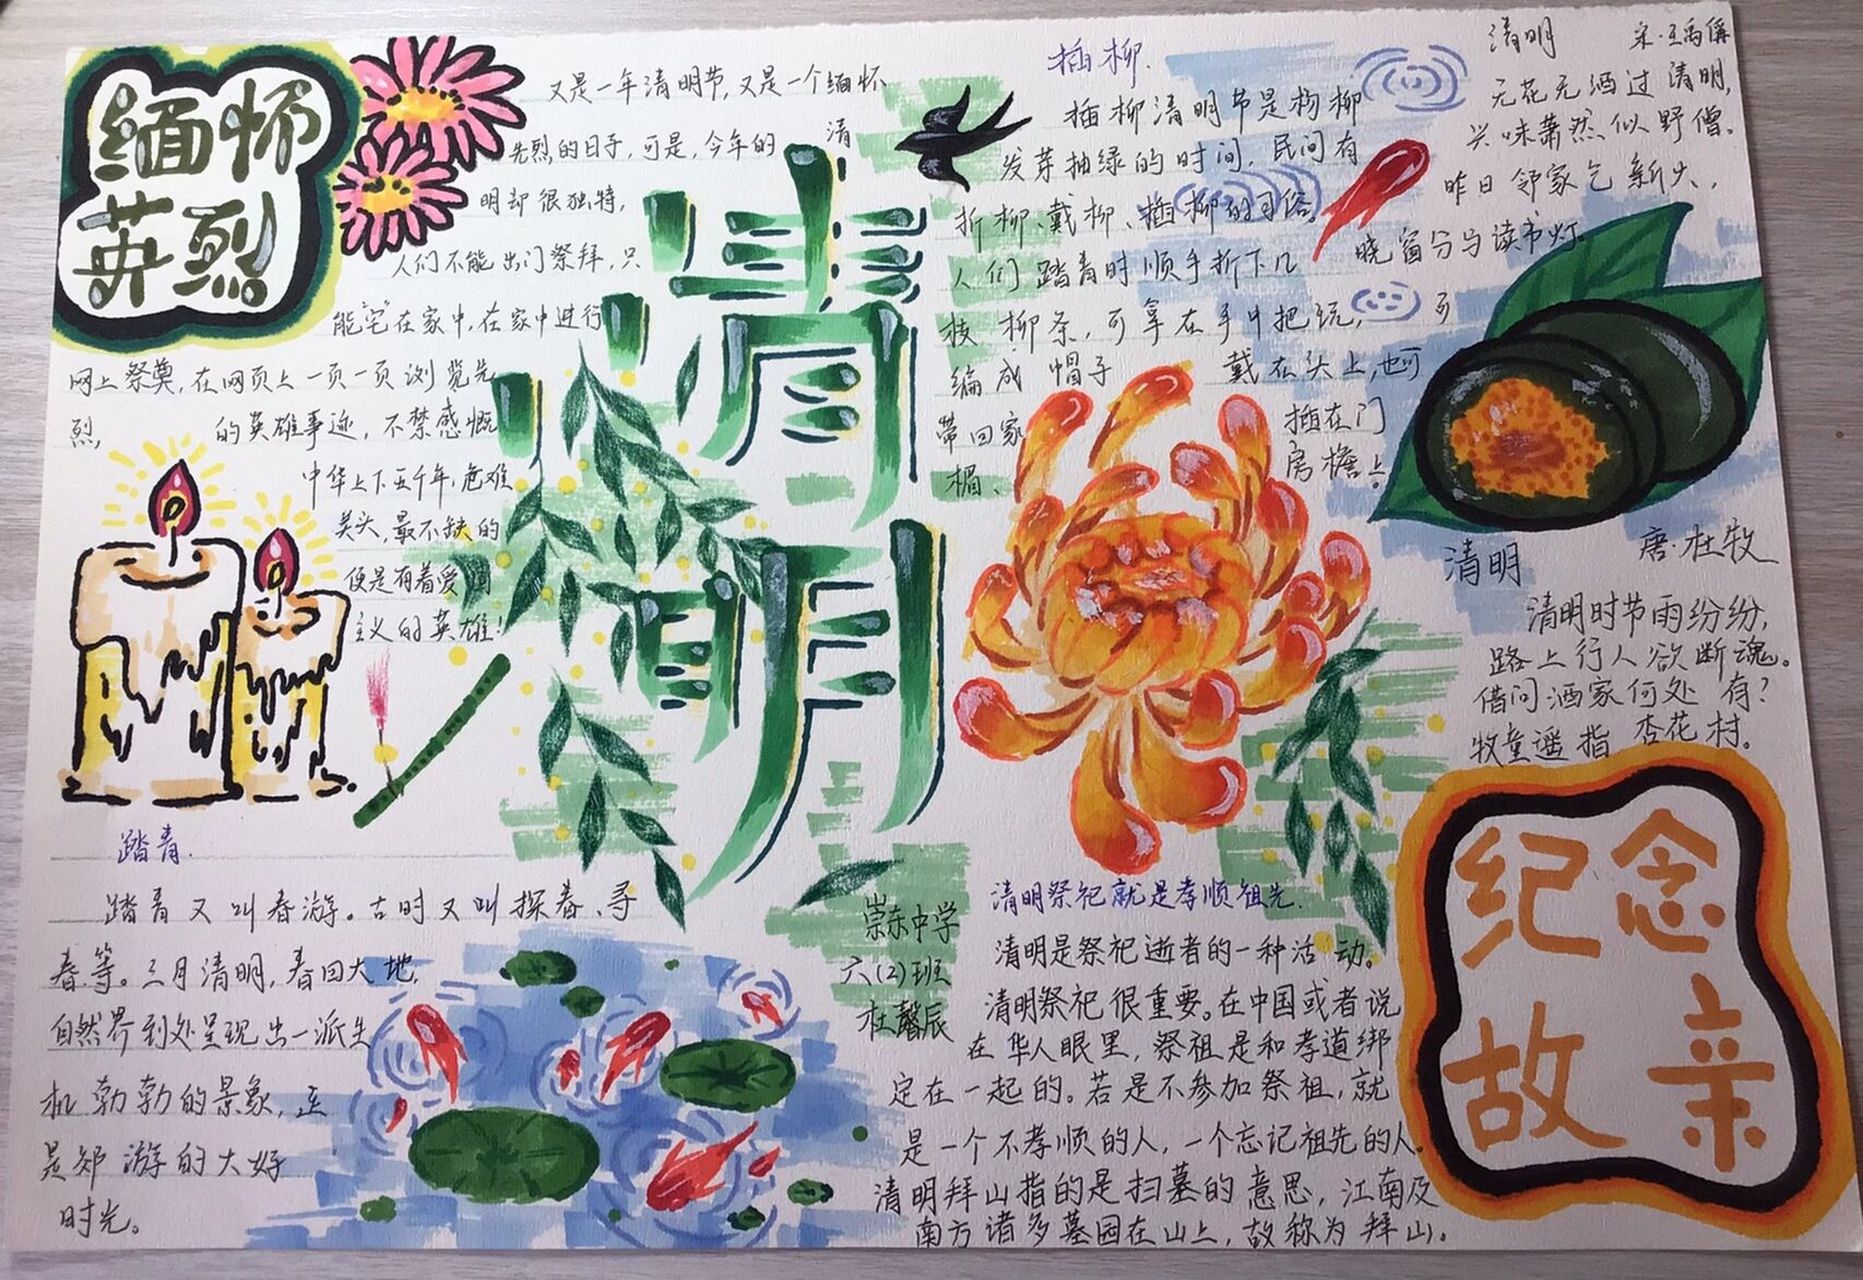 缅怀
英烈
又是一年清明节,又是一个缅怀
先烈的日子,可是,今年的 清
明却很独特,
人们不能出门祭拜,只
能“宅”在家中,在家中进行
网上祭奠,在网页上一页一页浏览先
烈 的英雄事迹,不禁感慨
中华上下五千年,危难
关头,最不缺的
便是有着爱国
主义的英雄!
清
明
踏青.
踏青又叫春游。古时又叫探春、寻
春等。三月清明,春回大地,
自然界到处呈现出一派生
机勃勃的景象,正
是郊游的大好
时光。
插柳.
插柳清明节是杨柳
发芽抽绿的时间,民间有
折柳、戴柳、插柳的习俗。
人们踏青时顺手折下几
枝柳条,可拿在手中把玩, 可
编成帽子 戴在头上,也可
带回家 插在门
楣、 房檐上。
清明 宋·王禹偁
无花无酒过清明,
兴味萧然似野僧。
昨日邻家乞新火,
晓窗分与读书灯。
清明 唐·杜牧
清明时节雨纷纷,
路上行人欲断魂。
借问酒家何处有?
牧童遥指杏花村。
崇东中学
六(2)班
杜馨辰
清明祭祀就是孝顺祖先.
清明是祭祀逝者的一种活动。
清明祭祀很重要。在中国或者说
在华人眼里,祭祖是和孝道绑
定在一起的。若是不参加祭祖,就
是一个不孝顺的人,一个忘记祖先的人。
清明拜山指的是扫墓的意思,江南及
南方诸多墓园在山上,故称为拜山。
纪念
故亲